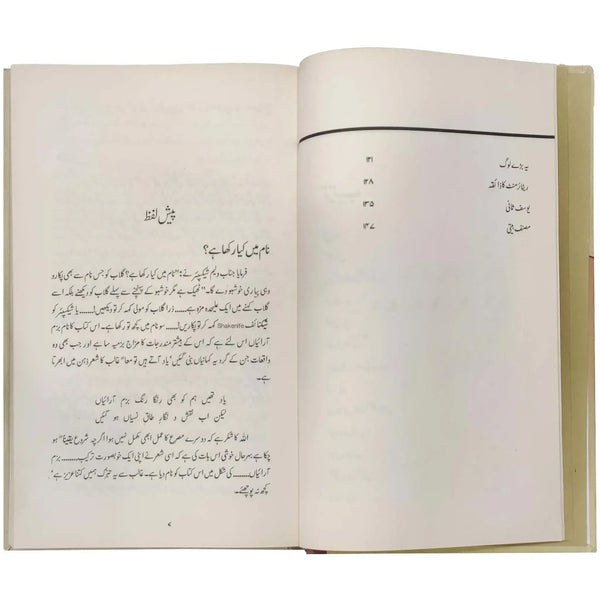 یہ بڑے لوگ ۱۲۱
ریٹائرمنٹ کا ذائقہ ۱۲۸
یوسف ثانی ۱۳۵
مصنف بیتی ۱۴۷
پیش لفظ
نام میں کیا رکھا ہے؟
فرمایا جناب ولیم شیکسپئر نے: "نام میں کیا رکھا ہے؟ گلاب کو جس نام سے بھی پکارو
وہی پیاری خوشبو دے گا۔" ٹھیک ہے مگر خوشبو کے پہنچنے سے پہلے گلاب کو دیکھنے بلکہ اسے
گلاب کہنے میں ایک علیحدہ مزہ ہے۔ ذرا گلاب کو مولی کہہ کر تو دیکھیں! یا شیکسپئر کو
شیکنائف Shakenife کہہ کر تو پکاریں!...... سو نام میں کچھ تو رکھا ہے۔ اس کتاب کا نام بزم
آرائیاں اس لئے ہے کہ اس کے بیشتر مندرجات کا مزاج بزمیہ سا ہے اور جب بھی وہ
واقعات جن کے گرد یہ کہانیاں بنی گئیں' یاد آتے ہیں تو معاً غالب کا شعر ذہن میں ابھرتا
ہے۔
یاد تھیں ہم کو بھی رنگا رنگ بزم آرائیاں
لیکن اب نقش و نگار طاق نسیاں ہو گئیں
اللہ کا شکر ہے کہ دوسرے مصرع کا عمل ابھی مکمل نہیں ہوا اگرچہ شروع یقیناً ہو
چکا ہے بہرحال خوشی اس بات کی ہے کہ اسی شعر نے اپنی ایک خوبصورت ترکیب...... بزم
آرائیاں...... کی شکل میں اس کتاب کو نام دیا ہے۔ غالب سے یہ تبرک ہمیں کتنا عزیز ہے'
کچھ نہ پوچھئے۔
۷